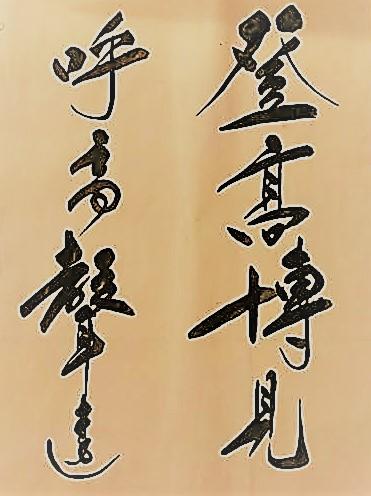 登高博見
呼高聲達